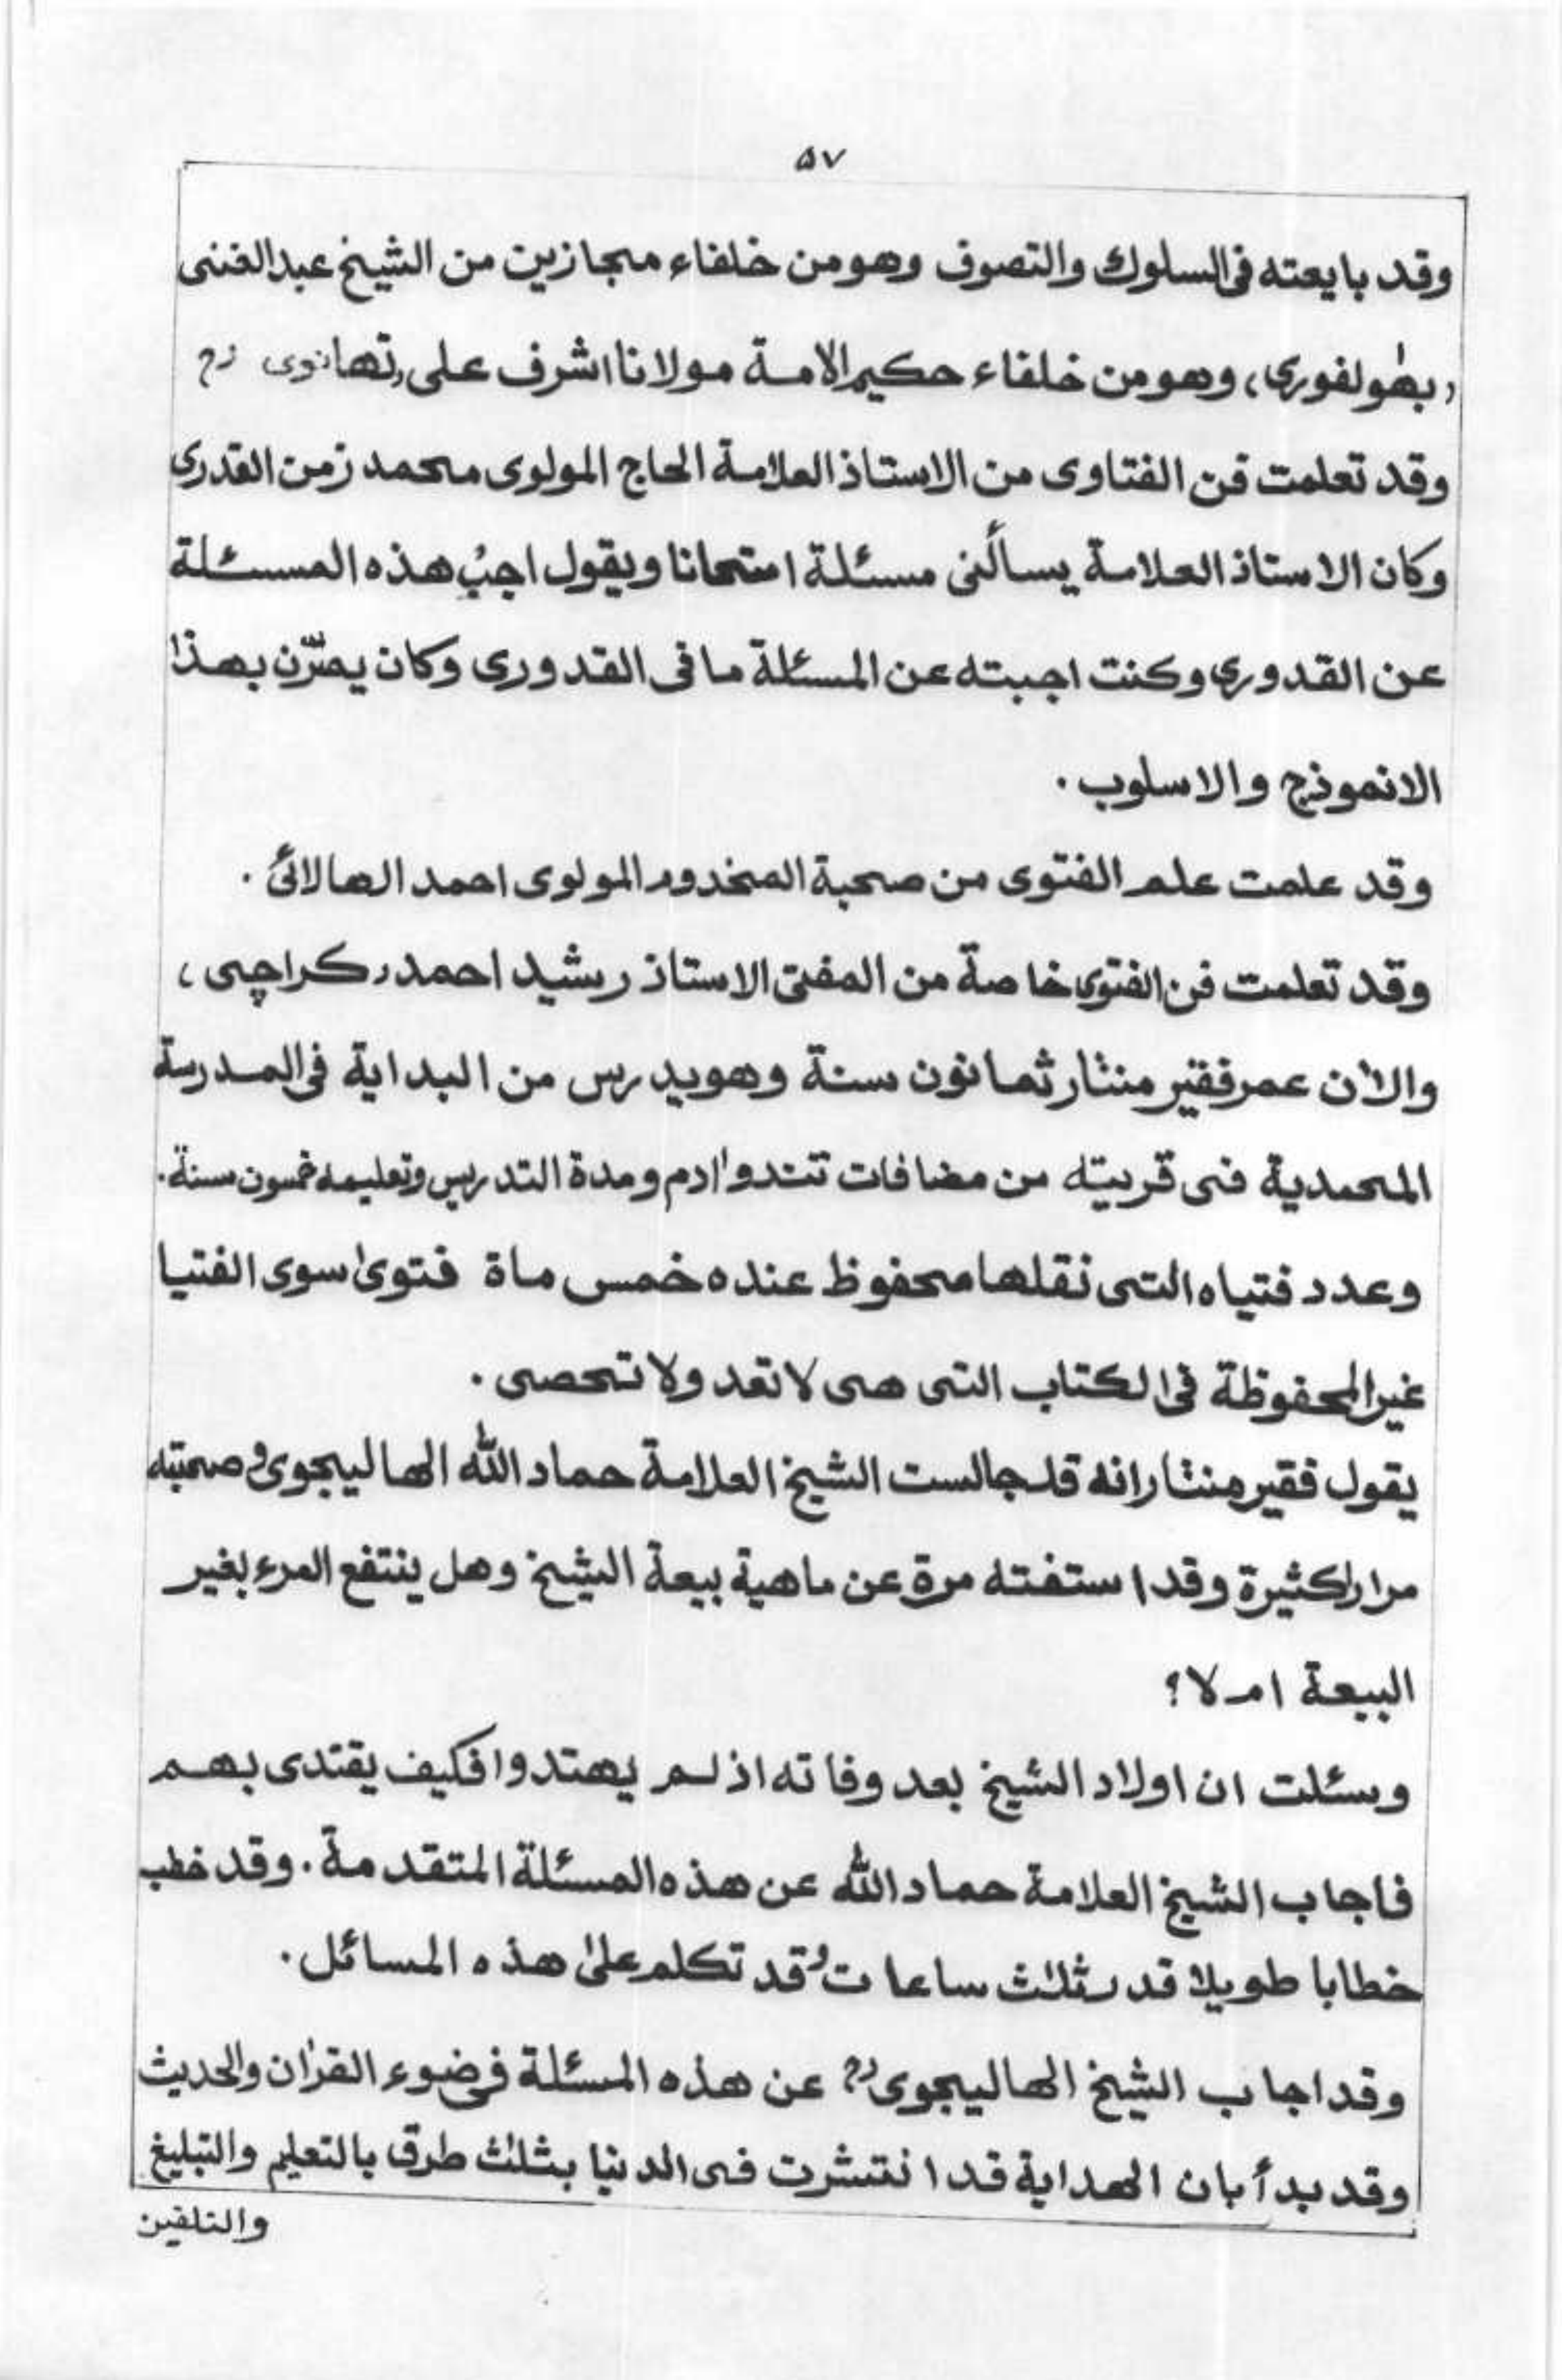 ٥٧
وقد بايعته فى السلوك والتصوف وهو من خلفاء مجازين من الشيخ عبد الغنى
(بھولفوری) وهو من خلفاء حكيم الامة مولانا اشرف على تھانوى رح
وقد تعلمت فن الفتاوى من الاستاذ العلامة الحاج المولوى محمد زمن القدرى
وكان الاستاذ العلامة يسألنى مسئلة امتحانا ويقول اجب هذه المسئلة
عن القدورى وكنت اجبته عن المسئلة ما فى القدورى وكان يمرّن بهذا
الانموذج والاسلوب ۰
وقد علمت علم الفتوى من صحبة المخدوم المولوى احمد الهالائى ۰
وقد تعلمت فن الفتوى خاصة من المفتى الاستاذ رشيد احمد (كراچى)
والاٰن عمر فقير منثار ثمانون سنة وهو يدرس من البداية فى المدرسة
المحمدية فى قريته من مضافات تندوادم ومدة التدريس وتعليمه خمسون سنة۰
وعدد فتياه التى نقلها محفوظ عنده خمس ماة فتوىٰ سوى الفتيا
غير المحفوظة فى الكتاب التى هى لا تعد ولا تحصى ۰
يقول فقير منثار انه قد جالست الشيخ العلامة حماد الله الهاليجوى وصحبته
مرارا كثيرة وقد استفته مرة عن ماهية بيعة الشيخ وهل ينتفع المرء بغير
البيعة ام لا؟
وسئلت ان اولاد الشيخ بعد وفاته اذ لم يهتدوا فكيف يقتدى بهم
فاجاب الشيخ العلامة حماد الله عن هذه المسئلة المتقدمة ۰ وقد خطب
خطابا طويلا قدر ثلاث ساعات وقد تكلم علىٰ هذه المسائل ۰
وقد اجاب الشيخ الهاليجوى رح عن هذه المسئلة فى ضوء القراٰن والحديث
وقد بدأ بان الهداية قد انتشرت فى الدنيا بثلاث طرق بالتعليم والتبليغ
والتلقين